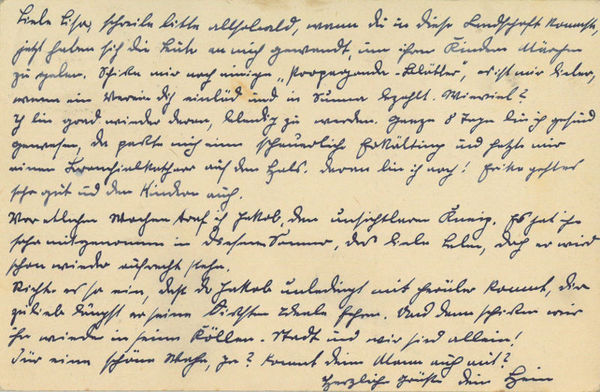 Liebe Lisa, schreibe bitte alsobald, wann du in diese Landschaft kommst,
jetzt haben sich die Leute an mich gewandt, um ihren Kindern Märchen
zu geben. Schicke mir noch einige „Propaganda-Blätter", es ist mir lieber,
wenn ein Verein dich einlud und in Summa bezahlt. Wieviel?
Ich bin grad wieder daran, lebendig zu werden. Ganze 8 Tage bin ich gesund
gewesen, da packte mich eine schauerliche Erkältung und hetzte mir
einen Bronchialkatharr auf den Hals. Daran bin ich noch! Erika geht es
sehr gut und den Kindern auch.
Vor etlichen Wochen traf ich Jakob, den unsichtbaren König. Es hat ihn
sehr mitgenommen in diesem Sommer, das liebe Leben, doch er wird
schon wieder aufrecht stehn.
Richte es so ein, dass du Jakob unbedingt mit hierüber kommt, dir
zulieb dämpft er seine Ideale schon. Und dann schicken wir
ihn wieder in seine Stadt und wir sind allein!
Für eine schöne Woche, ja? Kommt dein Mann auch mit?
Herzliche Grüße dein Heim